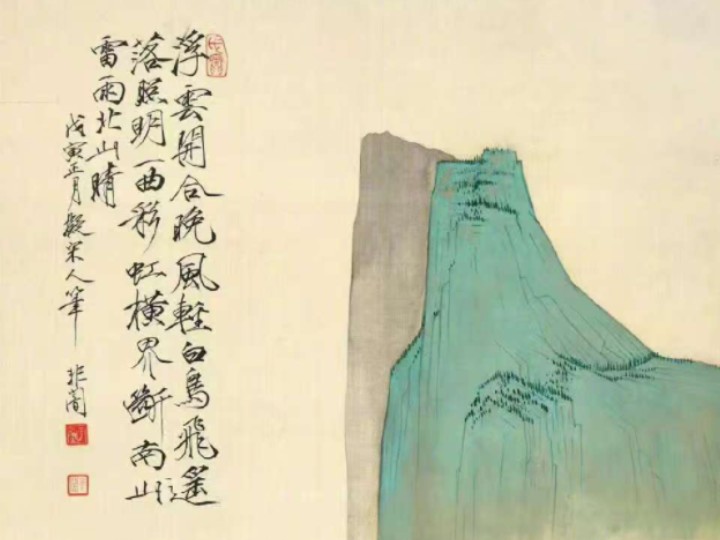 浮雲開合晚風輕白鳥飛邊
落照明一曲彩虹橫界斷南山
雷雨北山晴
戊寅正月擬宋人筆 非闇